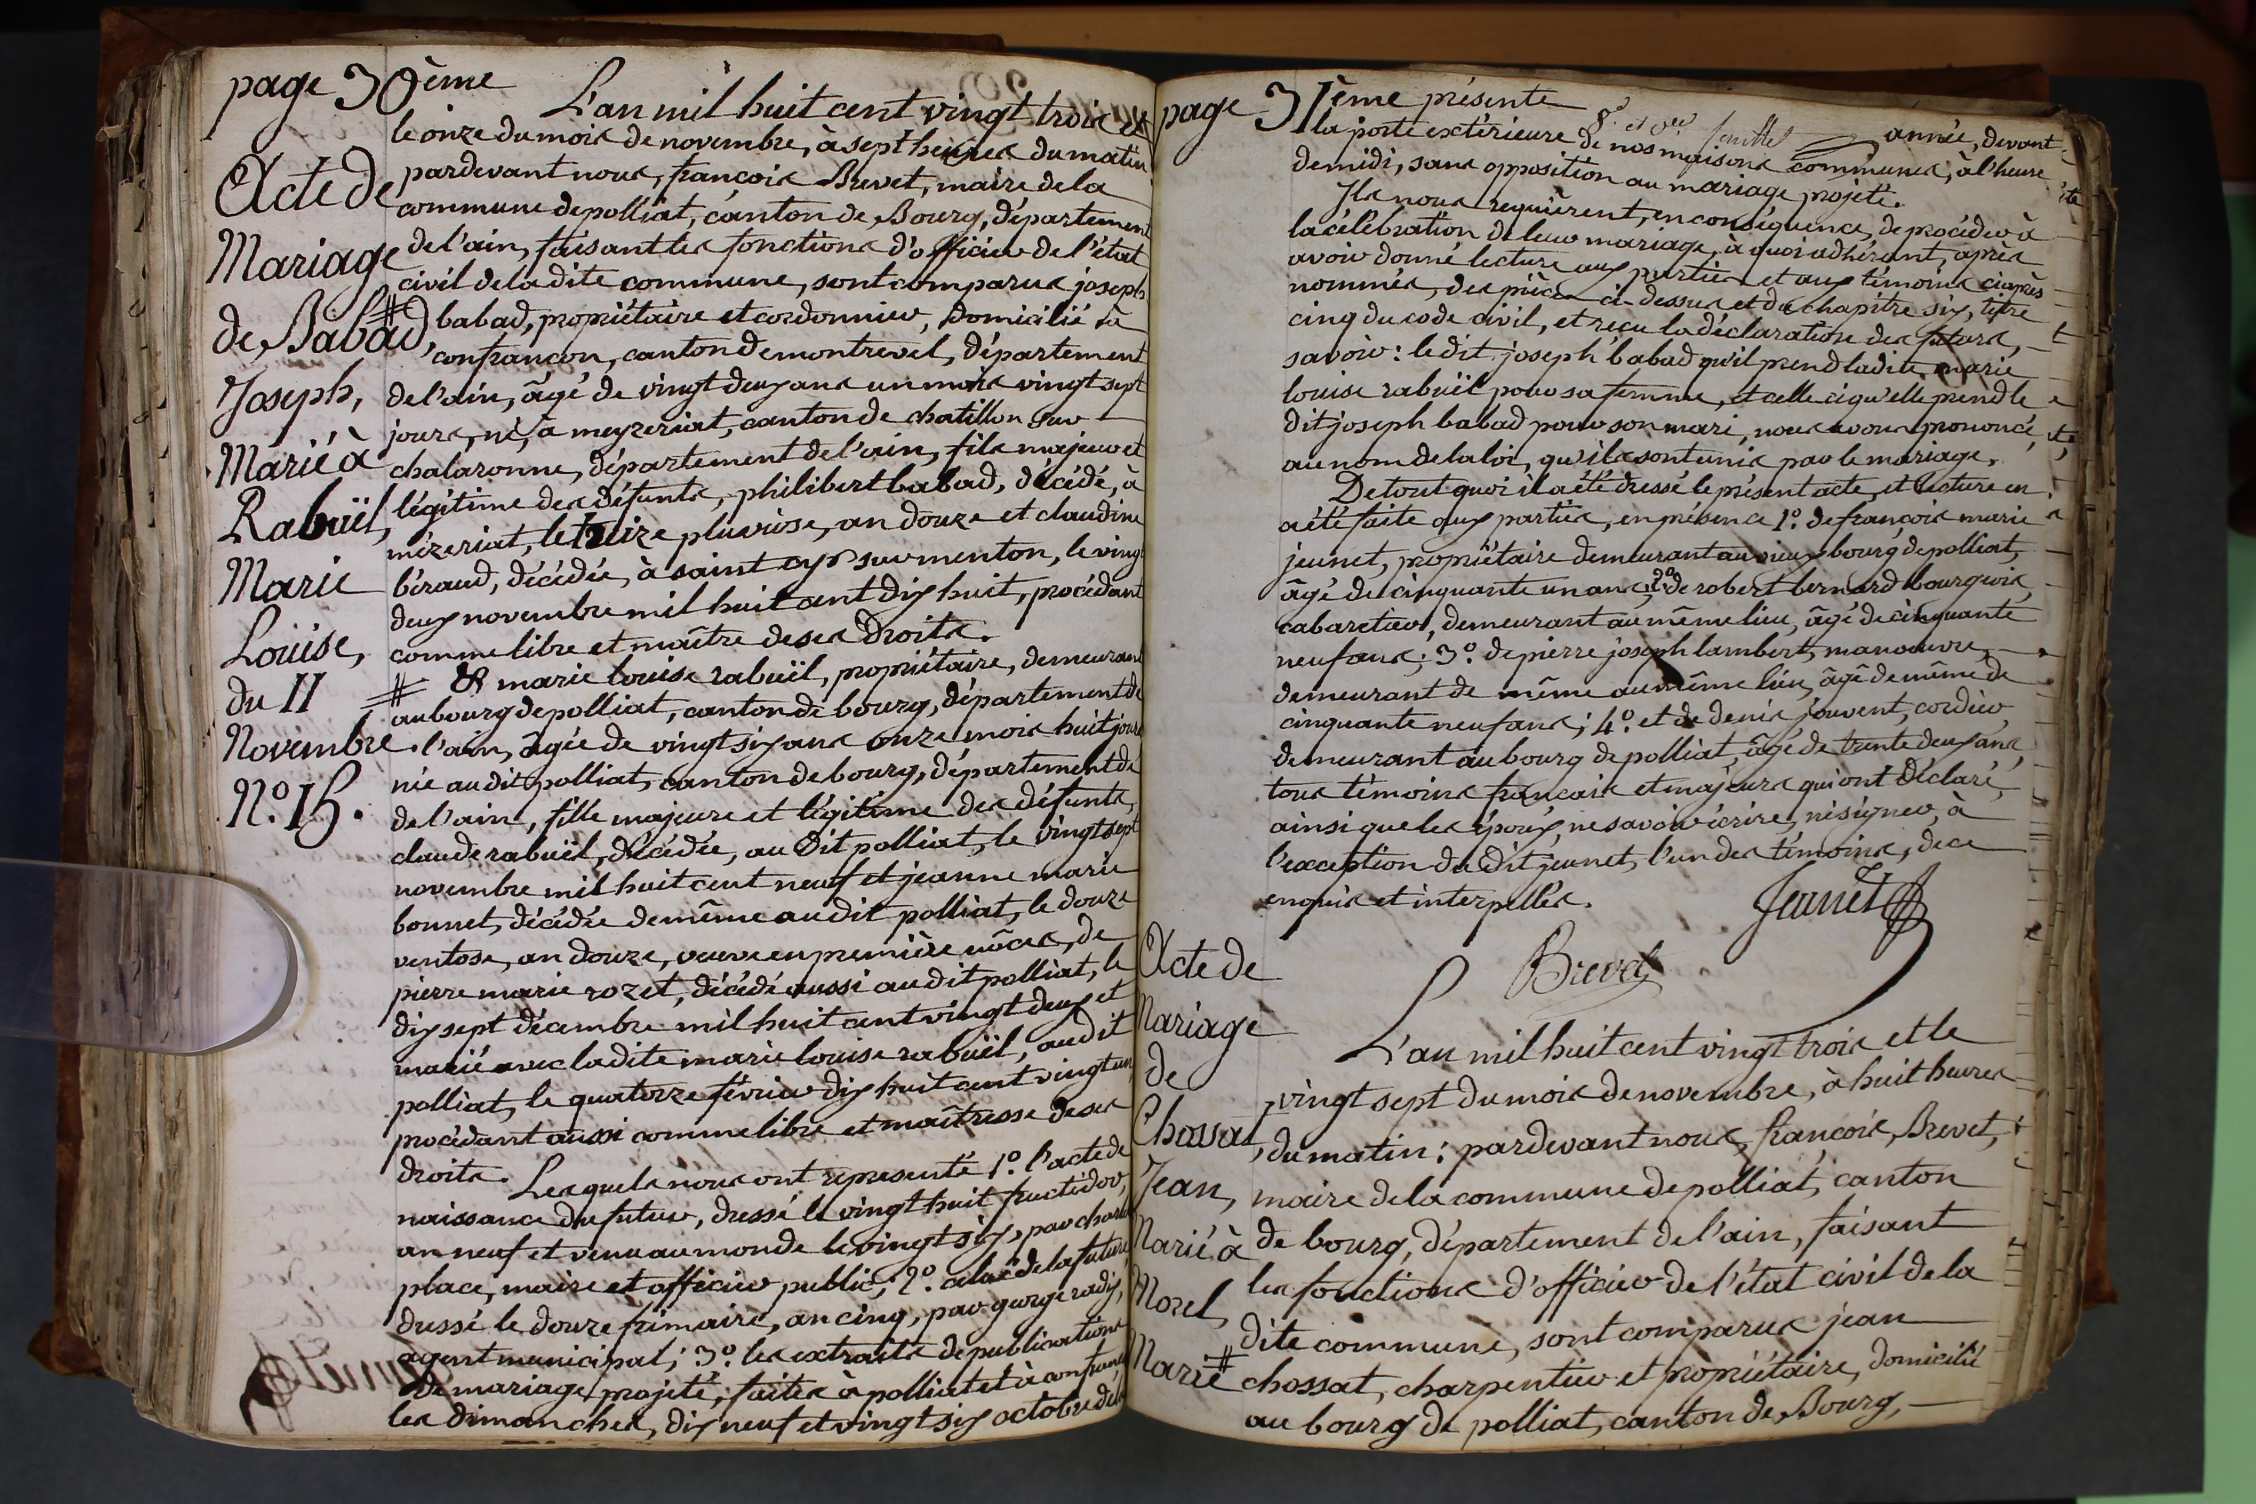 page 30ème
L'an mil huit cent vingt trois et
le onze du mois de novembre, à sept heures du matin
pardevant nous, françois Brevet, maire de la
commune de polliat, canton de Bourg, département
de l'ain, faisant les fonctions d'officier de l'état
civil de la dite commune, sont comparus joseph
babad, propriétaire et cordonnier, domicilié à
confrançon, canton de montrevel, département
de l'ain, âgé de vingt deux ans un mois vingt sept
jours, né, à meyzeriat, canton de chatillon sur
chalaronne, département de l'ain, fils majeur et
légitime des défunts, philibert babad, décédé, à
mézeriat, le treize pluviôse, an douze et claudine
béraud, décédée, à saint cyr sur menton, le vingt
deux novembre mil huit cent dix huit, procédant
comme libre et maître de ses droits.
& marie louise rabuël, propriétaire, demeurant
au bourg de polliat, canton de bourg, département de
l'ain, âgée de vingt six ans onze mois huit jours
née au dit polliat, canton de bourg, département de
de l'ain, fille majeure et légitime des défunts,
claude rabuël, décédée, au dit polliat, le vingt sept
novembre mil huit cent neuf et jeanne marie
bonnet, décédée de même au dit polliat, le douze
ventose, an douze, veuve en première nôces, de
pierre marie rozet, décédé aussi au dit polliat, le
dix sept décembre mil huit cent vingt deux et
marié avec la dite marie louise rabuël, au dit
polliat, le quatorze février dix huit cent vingt un,
procédant aussi comme libre et maîtresse de ses
droits.
Lesquels nous ont representé 1º. l'acte de
naissance du futur, dressé le vingt huit fructidor,
an neuf et venu au monde le vingt six, par
place, maire et officier public; 2º. celui de la future,
dressé le douze frimaire, an cinq, par george radix,
agent municipal; 3º. les extraits de publications
de mariage projeté, faites à polliat et à
les dimanches, dix neuf et vingt six octobre de la
Acte de
Mariage
de Babad,
Joseph,
Marié à
Rabuël,
Marie
Louise,
du 11
Novembre.
Nº. 15.
page 31ème présente
année, devant
la porte extérieure de nos maisons communes, à l'heure
de midi, sans opposition au mariage projeté.
Ils nous requièrent, en conséquence, de procéder à
la célébration de leur mariage, à quoi adhérant, après
avoir donné lecture aux parties et aux témoins ci après
nommés, des pièces ci-dessus et du chapitre six, titre
cinq du code civil, et reçu la déclaration des futurs,
savoir: le dit joseph babad qu'il prend la dite marie
louise rabuël pour sa femme, et celle ci qu'elle prend le
dit joseph babad pour son mari, nous avons prononcé
au nom de la loi, qu'ils sont unis par le mariage.
De tout quoi il a été dressé le présent acte, et lecture en
a été faite aux parties, en présence 1º. de françois marie
jeunet, propriétaire demeurant au vieux bourg de polliat,
âgé de cinquante un ans; 2º. de robert bernard bourgeois,
cabaretier, demeurant au même lieu, âgé de cinquante
neuf ans; 3º. de pierre joseph lambert, manoeuvre,
demeurant de même au même lieu, âgé de même de
cinquante neuf ans; 4º. et de denis jouvent, cordier,
demeurant au bourg de polliat, âgé de trente deux ans,
tous témoins français et majeurs qui ont déclaré,
ainsi que les époux, ne savoir écrire, ni signer, à
l'exception du dit jeunet, l'un des témoins, de ce
enquis et interpellés.
Jeunet
Brevet
Acte de
Mariage
de
Chossat,
Jean,
Marié à
Morel,
Marie
L'an mil huit cent vingt trois et le
vingt sept du mois de novembre, à huit heures
du matin; pardevant nous, françois, Brevet,
maire de la commune de polliat, canton
de bourg, département de l'ain, faisant
les fonctions d'officier de l'état civil de la
dite commune, sont comparus jean
chossat, charpentier et propriétaire, domicilié
au bourg de polliat, canton de Bourg,